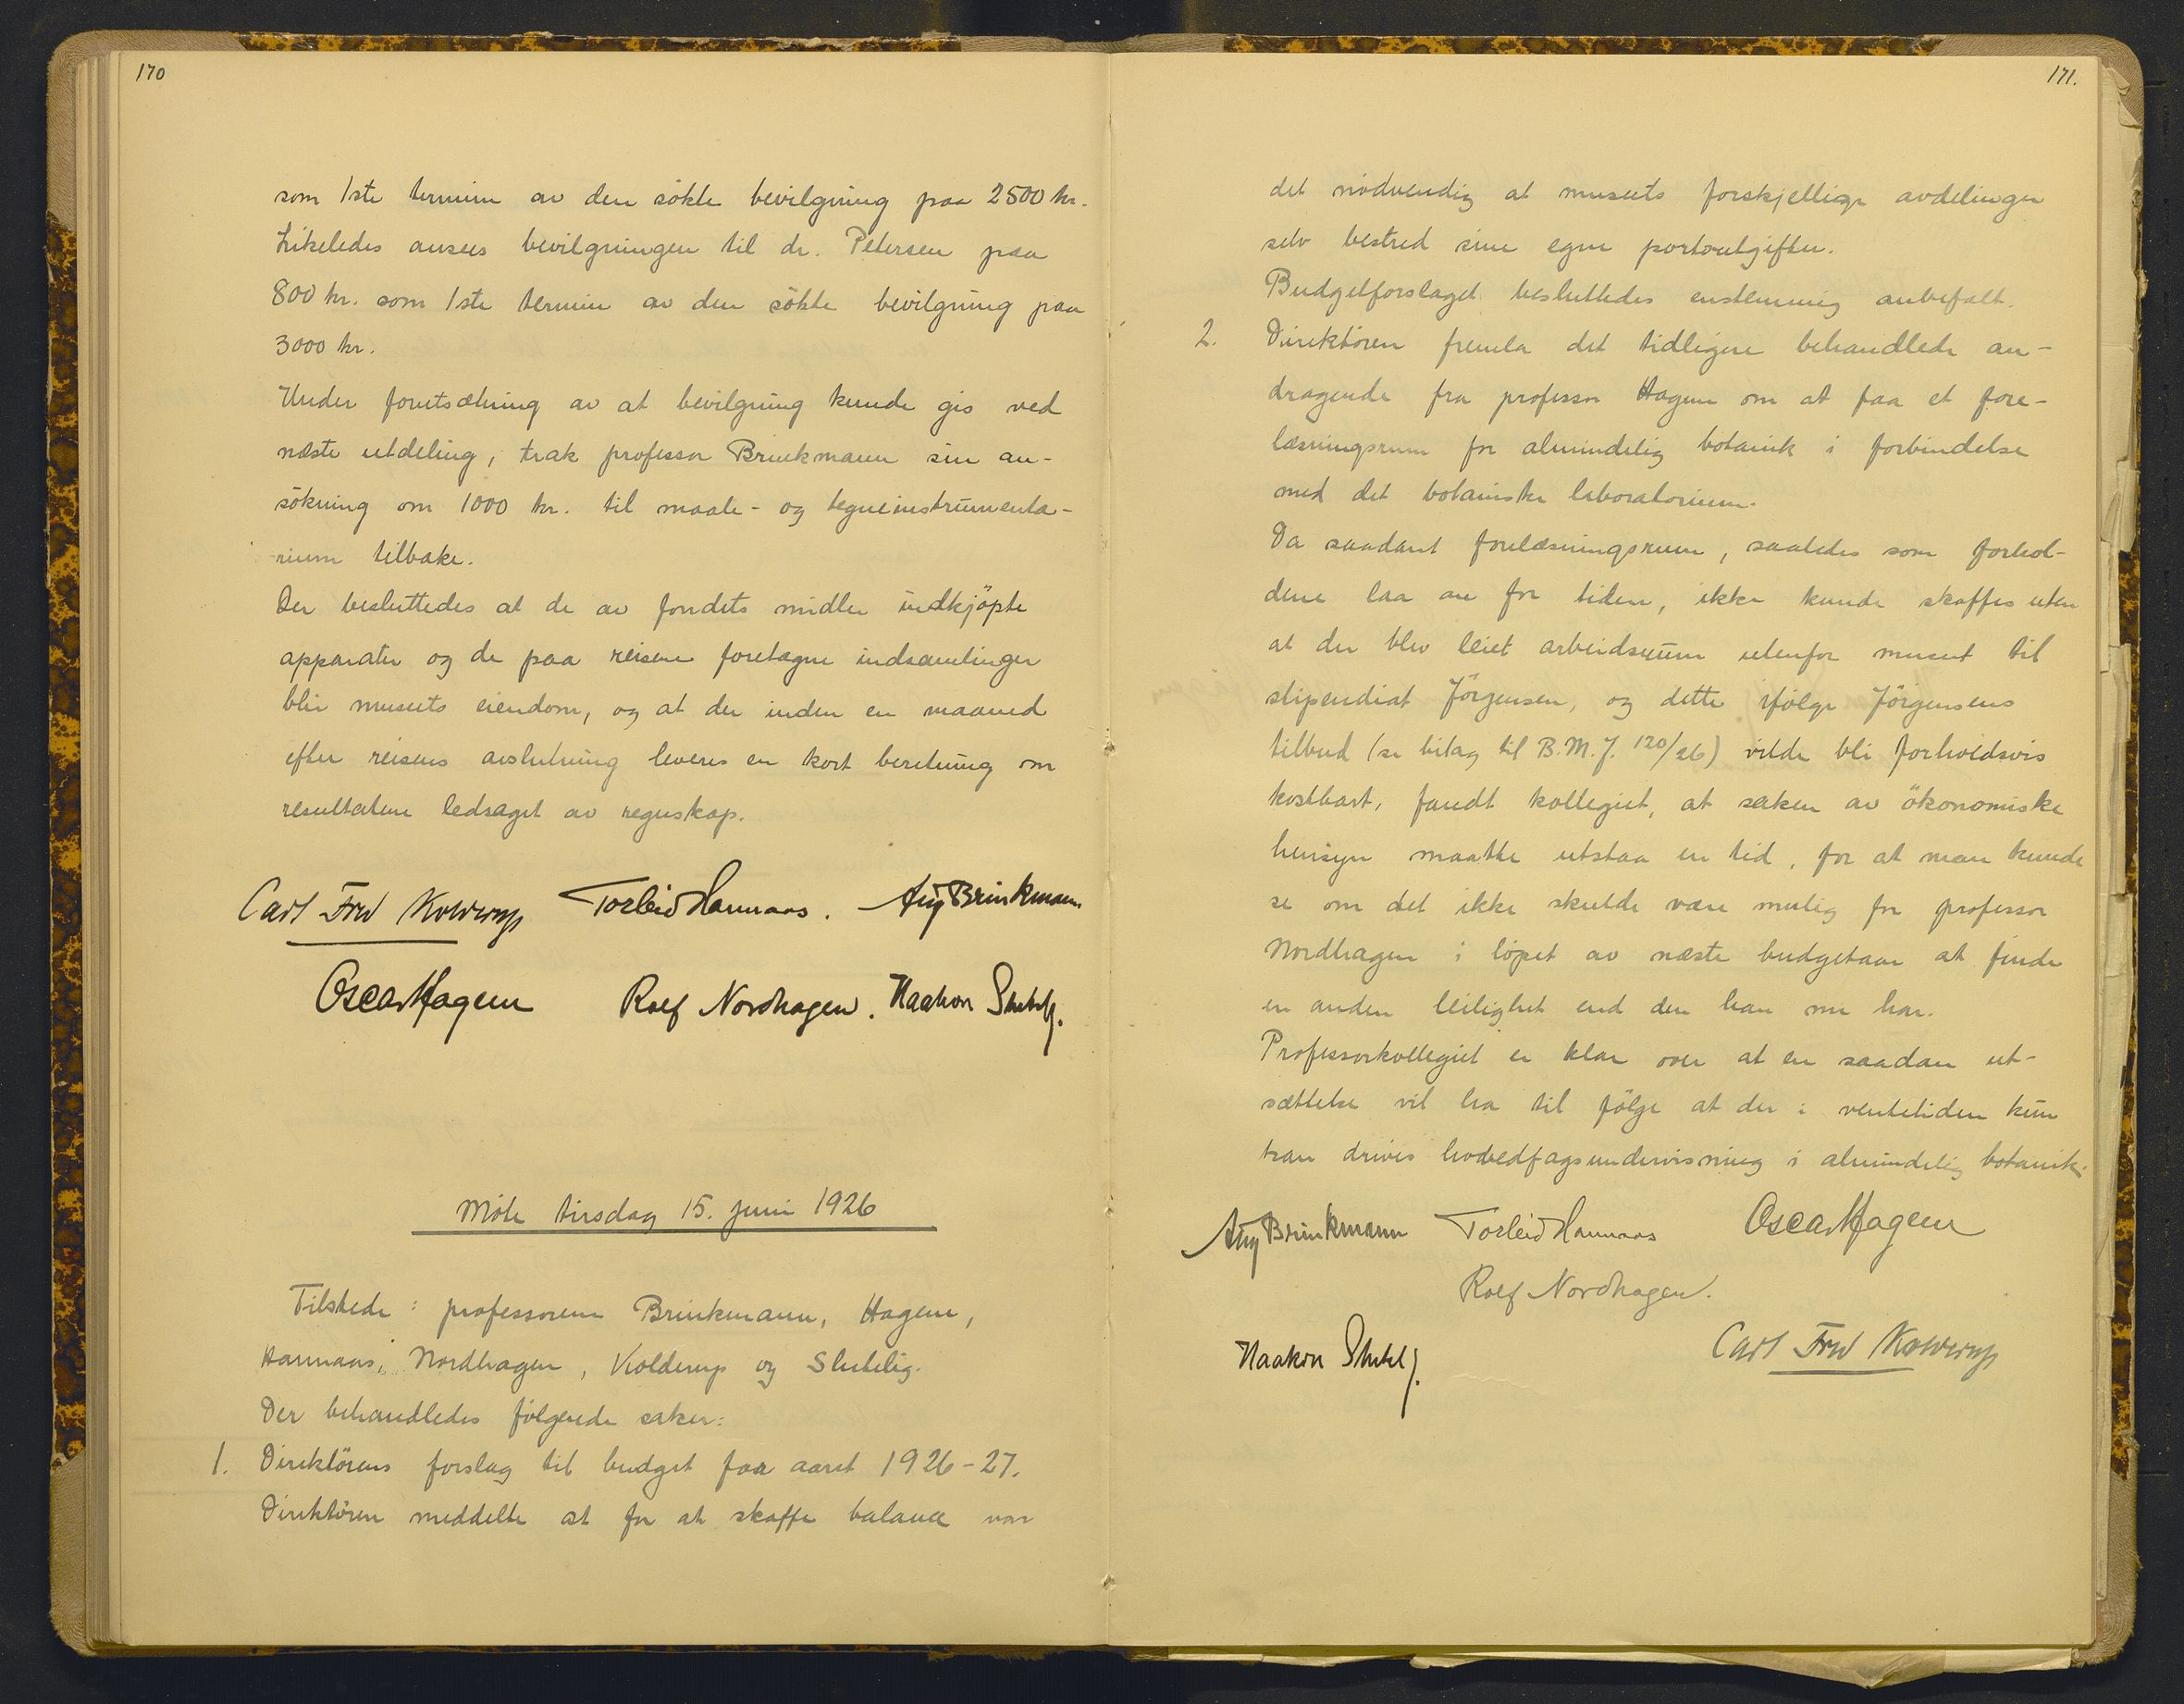 170
som 1ste termin av den sökte bevilgning paa 2500 kr.
Likeledes ansees bevilgningen til dr. Petersen paa
800 kr. som 1ste termin av den sökte bevilgning paa
3000 kr.
Under forutsætning av at bevilgning kunde gis ved
næste utdeling, trak professor Brinkmann sin an-
sökning om 1000 kr. til maale- og tegneinstrumenta-
rium tilbake.
Der besluttedes at de av fondets midler indkjöpte
apparater og de paa reisene foretagne indsamlinger
blir museets eiendom, og at der inden en maaned
efter reisens avslutning leveres en kort beretning om
resultatene ledsaget av regnskap.
Carl Fred Kolderup Torleiv Hannaas. Aug Brinkmann
Oscar Hagem Rolf Nordhagen. Haakon Shetelig.
Möte tirsdag 15. juni 1926
Tilstede: professorene Brinkmann, Hagem,
Hannaas, Nordhagen, Kolderup og Shetelig.
Der behandledes følgende saker:
1. Direktörens forslag til budget for aaret 1926-27.
Direktören meddelte at for at skaffe balance var
171.
det nödvendig at museets forskjellige avdelinger
selv bestred sine egne portoutgifter.
Budgetforslaget besluttedes enstemmig anbefalt.
2. Direktören fremla det tidligere behandlede an-
dragende fra professor Hagem om at faa et fore-
læsningsrum for almindelig botanik i forbindelse
med det botaniske laboratorium.
Da saadant forelæsningsrum, saaledes som forhol-
dene laa an for tiden, ikke kunde skaffes uten
at der blev leiet arbeidsrum utenfor museet til
stipendiat Jörgensen, og dette ifölge Jörgensens
tilbud (se bilag til B.M.J. 120/26) vilde bli forholdsvis
kostbart, fandt kollegiet, at saken av ökonomiske
hensyn maatte utstaa en tid, for at man kunde
se om det ikke skulde være mulig for professor
Nordhagen i löpet av næste budgetaar at finde
en anden leilighet end den han nu har.
Professorkollegiet er klar over at en saadan ut-
sættelse vil ha til fölge at der i ventetiden kun
kan drives hovedfagsundervisning i almindelig botanik.
Aug Brinkmann Torleiv Hannaas Oscar Hagem
Rolf Nordhagen.
Haakon Shetelig. Carl Fred Kolderup